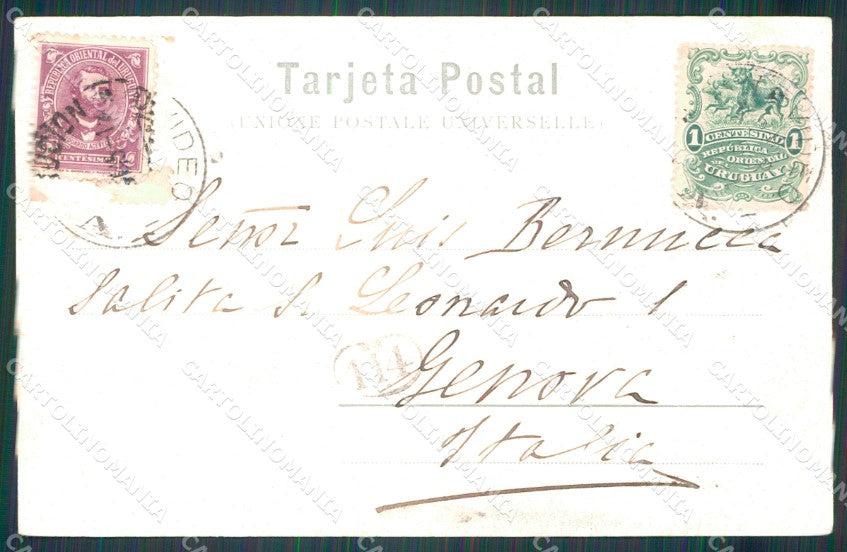 Tarjeta Postal
(UNIONE POSTALE UNIVERSELLE)
REPUBLICA ORIENTAL del URUGUAY
CENTESIMOS
1 CENTÉSIMO 1
REPÚBLICA
ORIENTAL
DEL
URUGUAY
Señor Luis Bernucca
Salita S. Leonardo 1
114
Genova
Italia
CARTOLINOMANIA